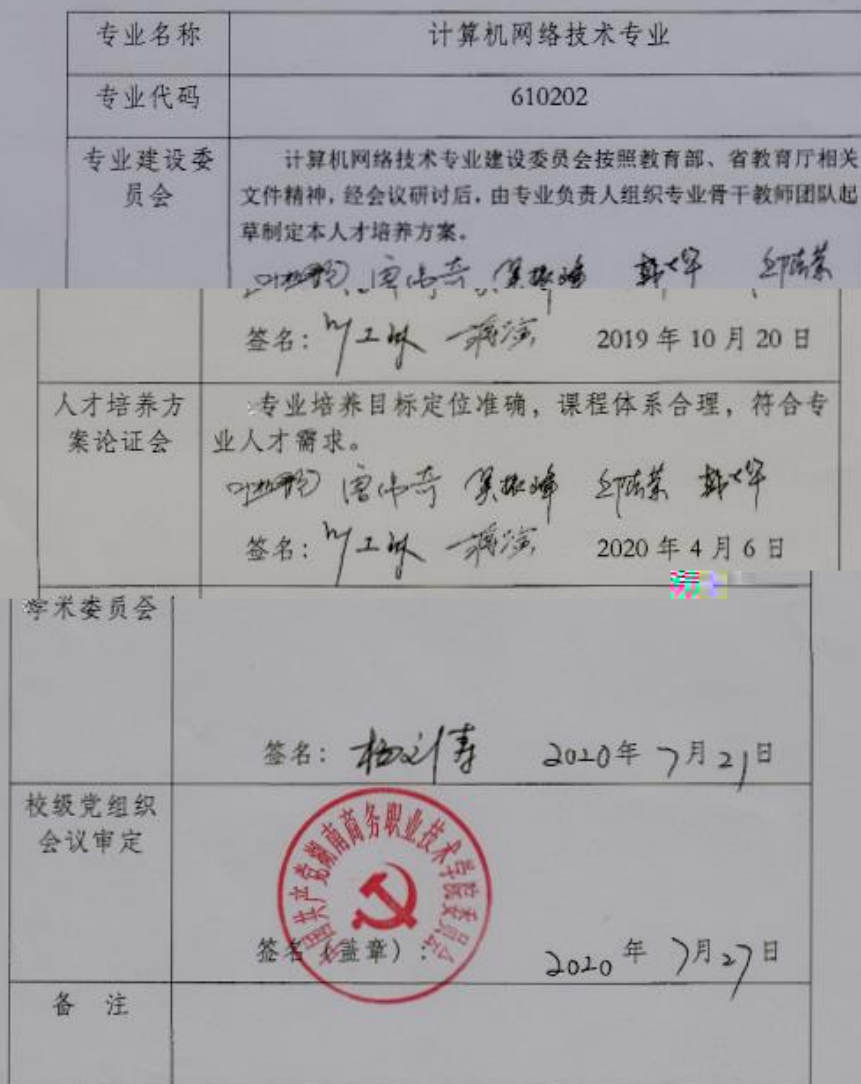 专业名称 计算机网络技术专业
专业代码 610202
专业建设委员会 计算机网络技术专业建设委员会按照教育部、省教育厅相关
文件精神，经会议研讨后，由专业负责人组织专业骨干教师团队起
草制定本人才培养方案。
签名： 2019 年 10 月 20 日
人才培养方案论证会 专业培养目标定位准确，课程体系合理，符合专
业人才需求。
签名： 2020 年 4 月 6 日
学术委员会
签名： 2020年 7月 21日
校级党组织会议审定
中国共产党湖南商务职业技术学院委员会
签名（盖章）： 2020 年 7月 27日
备 注